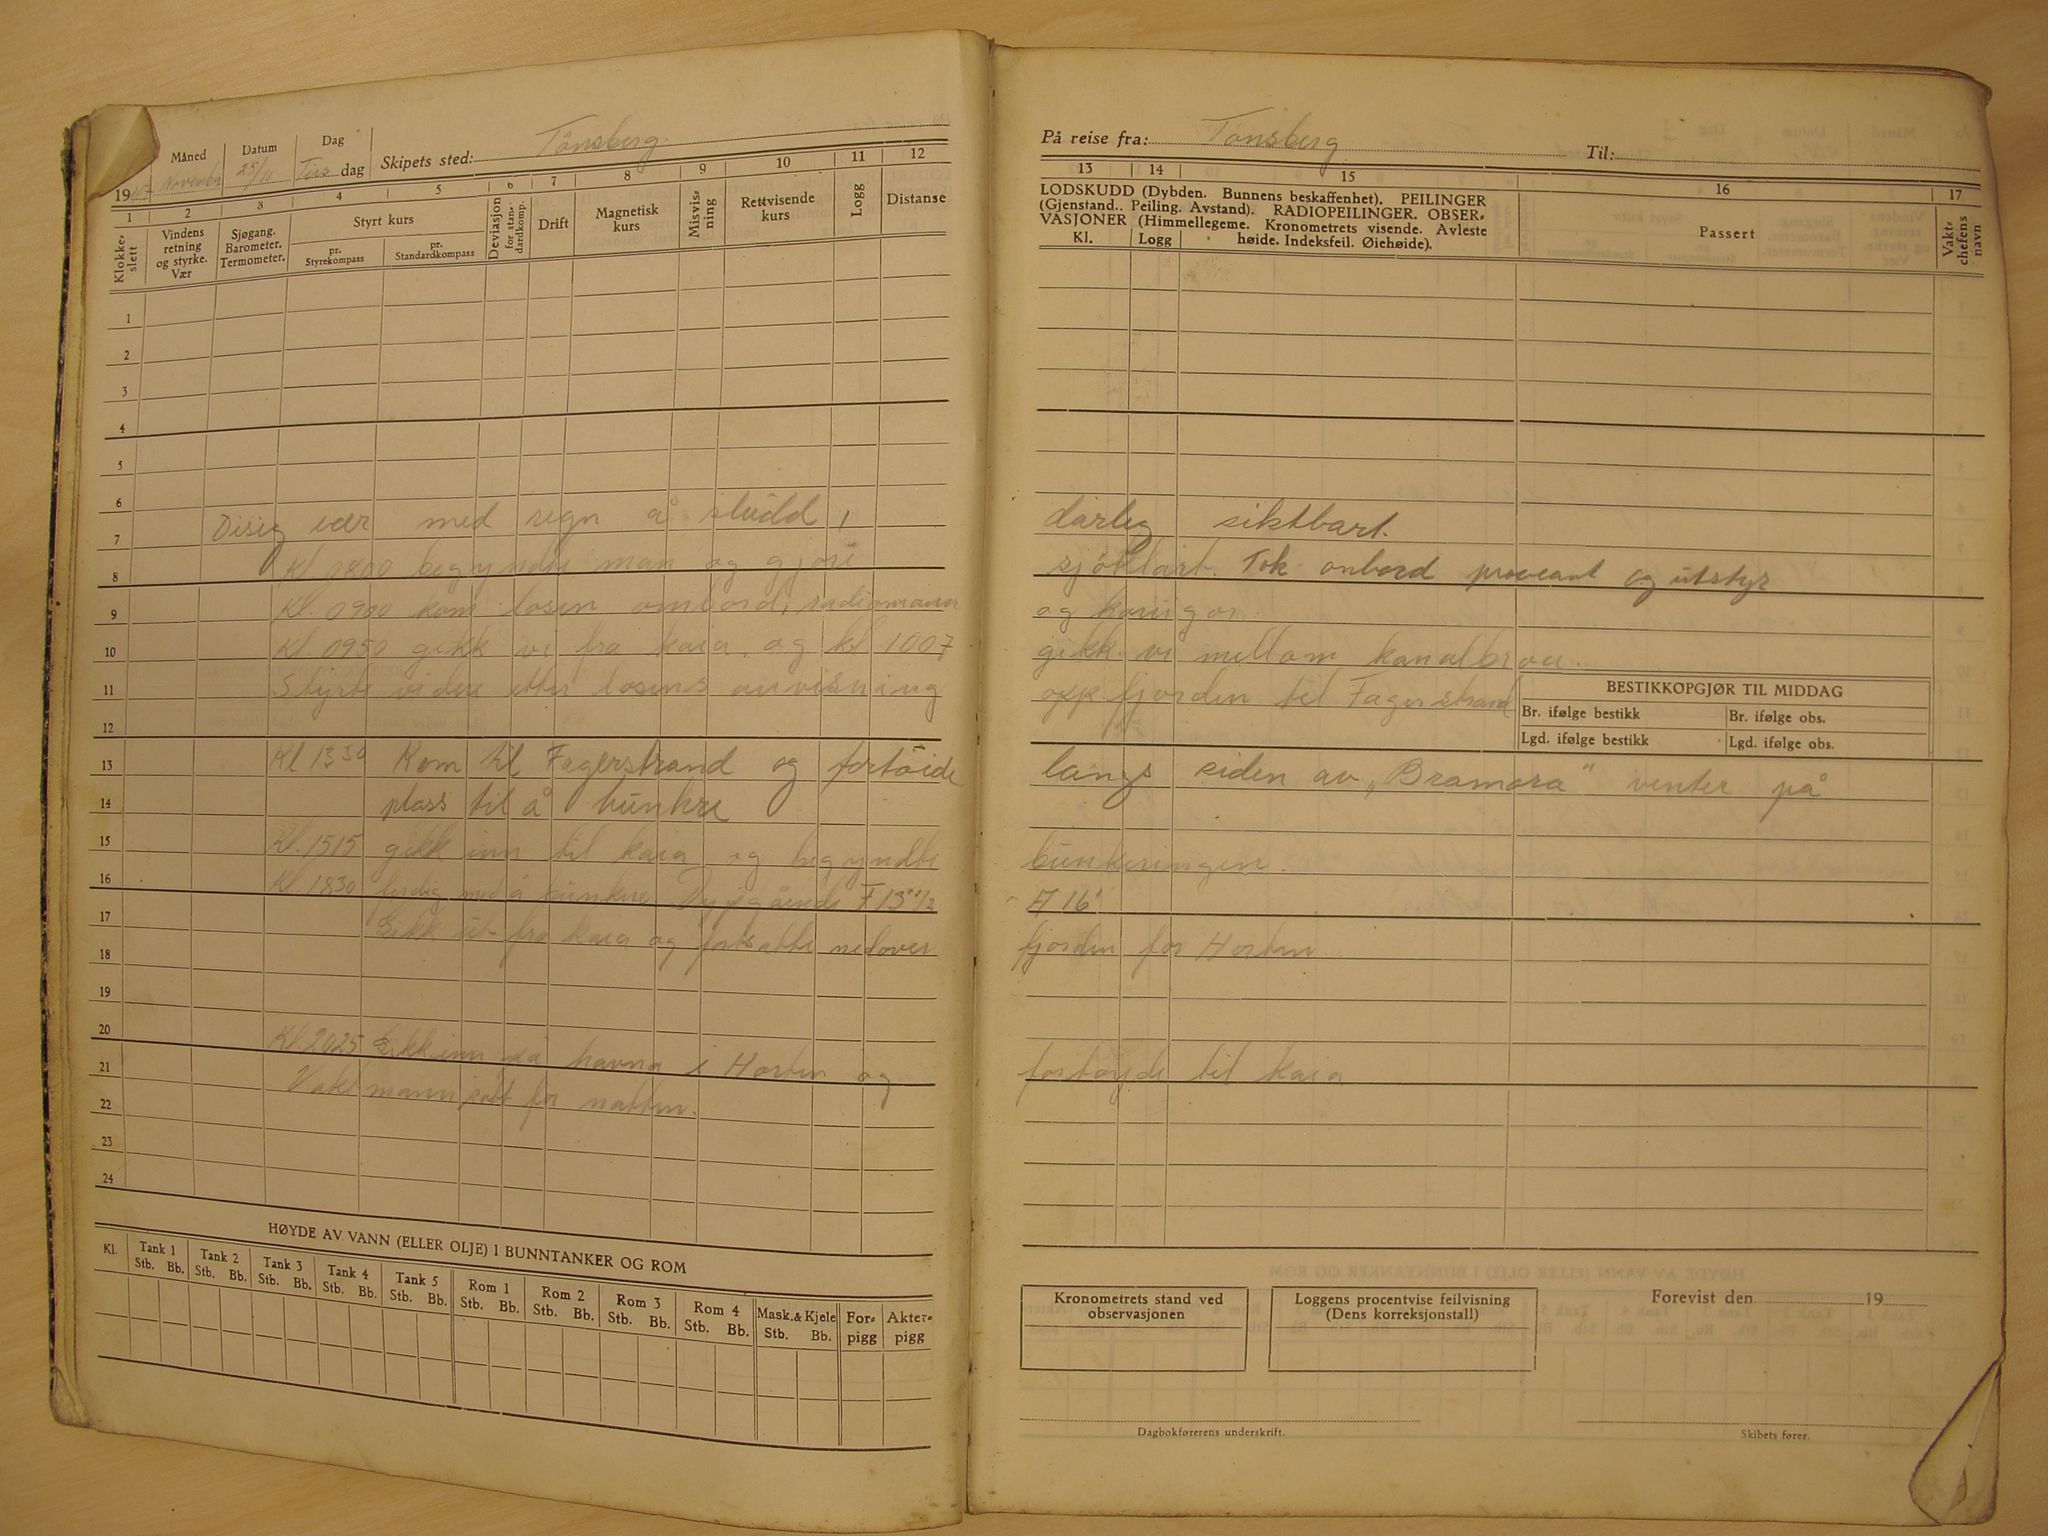 Måned Datum Dag
19 November 25/11 Tirs dag Skipets sted: Tönsberg.
1 2 3 4 5 6 7 8 9 10 11 12
Klokkeslett
Vindens retning og styrke. Vær
Sjøgang. Barometer. Termometer.
Styrt kurs
pr. Styrekompass
pr. Standardkompass
Deviasjon for standardkomp.
Drift
Magnetisk kurs
Misvisning
Rettvisende kurs
Logg
Distanse
1
2
3
4
5
6
7 Disig vær med regn å sludd,
8 Kl. 0800 begyndte man og gjøre
9 Kl. 0900 kom losen ombord, radiomann
10 Kl. 0950 gikk vi fra kaia, og kl 1007
11 Styrte videre etter losens anvisning
12
13 Kl 1330 Kom til Fagerstrand og fortöide
14 plass til å bunkre
15 Kl. 1515 gikk inn til kaia og begyndte
16 Kl. 1830 ferdig med å bunkre Dypgående F 13" 1/2
17 Gikk ut fra kaia og fortsatte nedover
18
19
20
21 Kl. 2025 Gikk inn på havna i Horten og
22 Vaktmann satt for natten.
23
24
HØYDE AV VANN (ELLER OLJE) I BUNNTANKER OG ROM
Kl. Tank 1 Tank 2 Tank 3 Tank 4 Tank 5 Rom 1 Rom 2 Rom 3 Rom 4 Mask. & Kjele Forpigg Akterpigg
Stb. Bb. Stb. Bb. Stb. Bb. Stb. Bb. Stb. Bb. Stb. Bb. Stb. Bb. Stb. Bb. Stb. Bb. Stb. Bb.
På reise fra: Tönsberg Til:
13 14 15 16 17
LODSKUDD (Dybden. Bunnens beskaffenhet). PEILINGER
(Gjenstand.. Peiling. Avstand). RADIOPEILINGER. OBSER-
VASJONER (Himmellegeme. Kronometrets visende. Avleste
Kl. Logg høide. Indeksfeil. Øiehøide).
Passert
Vaktchefens navn
dårlig siktbart.
sjöklart. Tok onbord proveant og utstyr
og
gikk vi mellom kanalbroa.
opp fjorden til Fagerstrand
BESTIKKOPGJØR TIL MIDDAG
Br. ifølge bestikk Br. ifølge obs.
Lgd. ifølge bestikk Lgd. ifølge obs.
langs siden av „Bramora" venter på
bunkeringen.
A 16'
fjorden for Horten
fortöyde til kaia
Kronometrets stand ved
observasjonen
Loggens procentvise feilvisning
(Dens korreksjonstall)
Forevist den 19
Dagbokførerens underskrift.
Skibets fører.